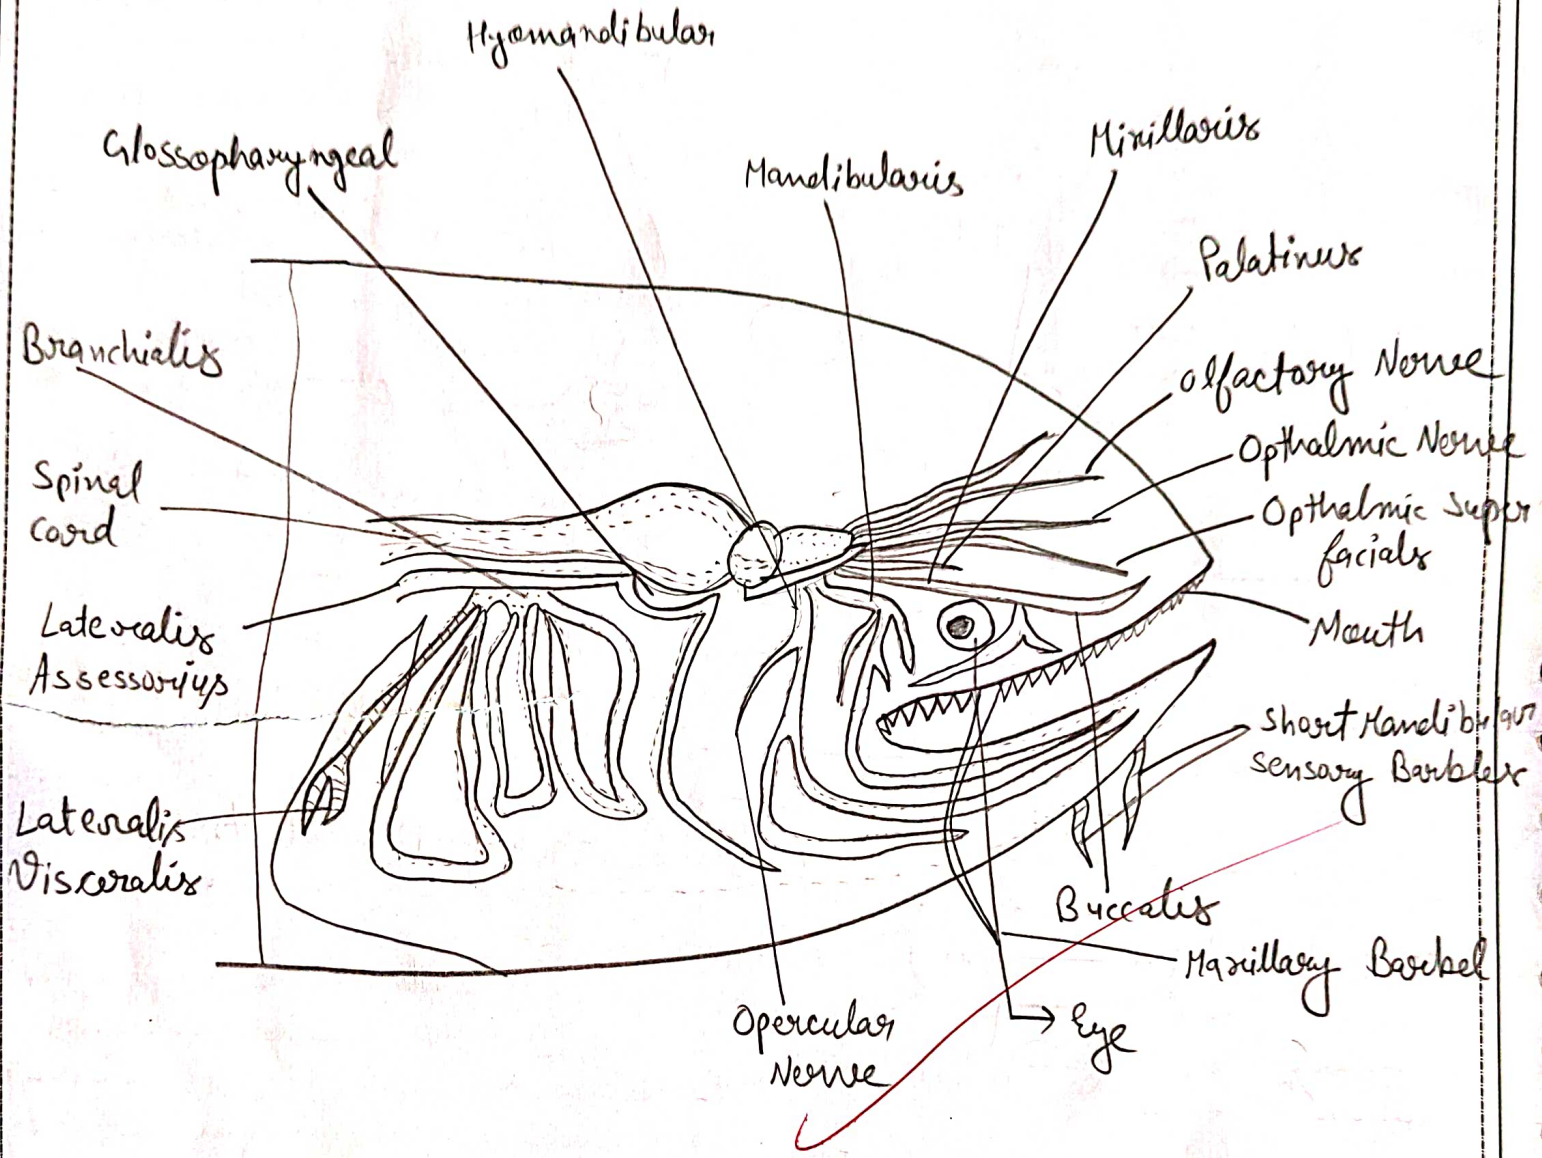 Hyomandibular
Glossopharyngeal
Mandibularis
Mixillaris
Palatinus
Branchialis
olfactory Nerve
Opthalmic Nerve
Spinal
cord
Opthalmic super
facials
Lateralis
Assessorius
Mouth
Short Mandibular
sensory Barbles
Lateralis
Visceralis
Buccalis
Maxillary Barbel
Opercular
Nerve
Eye